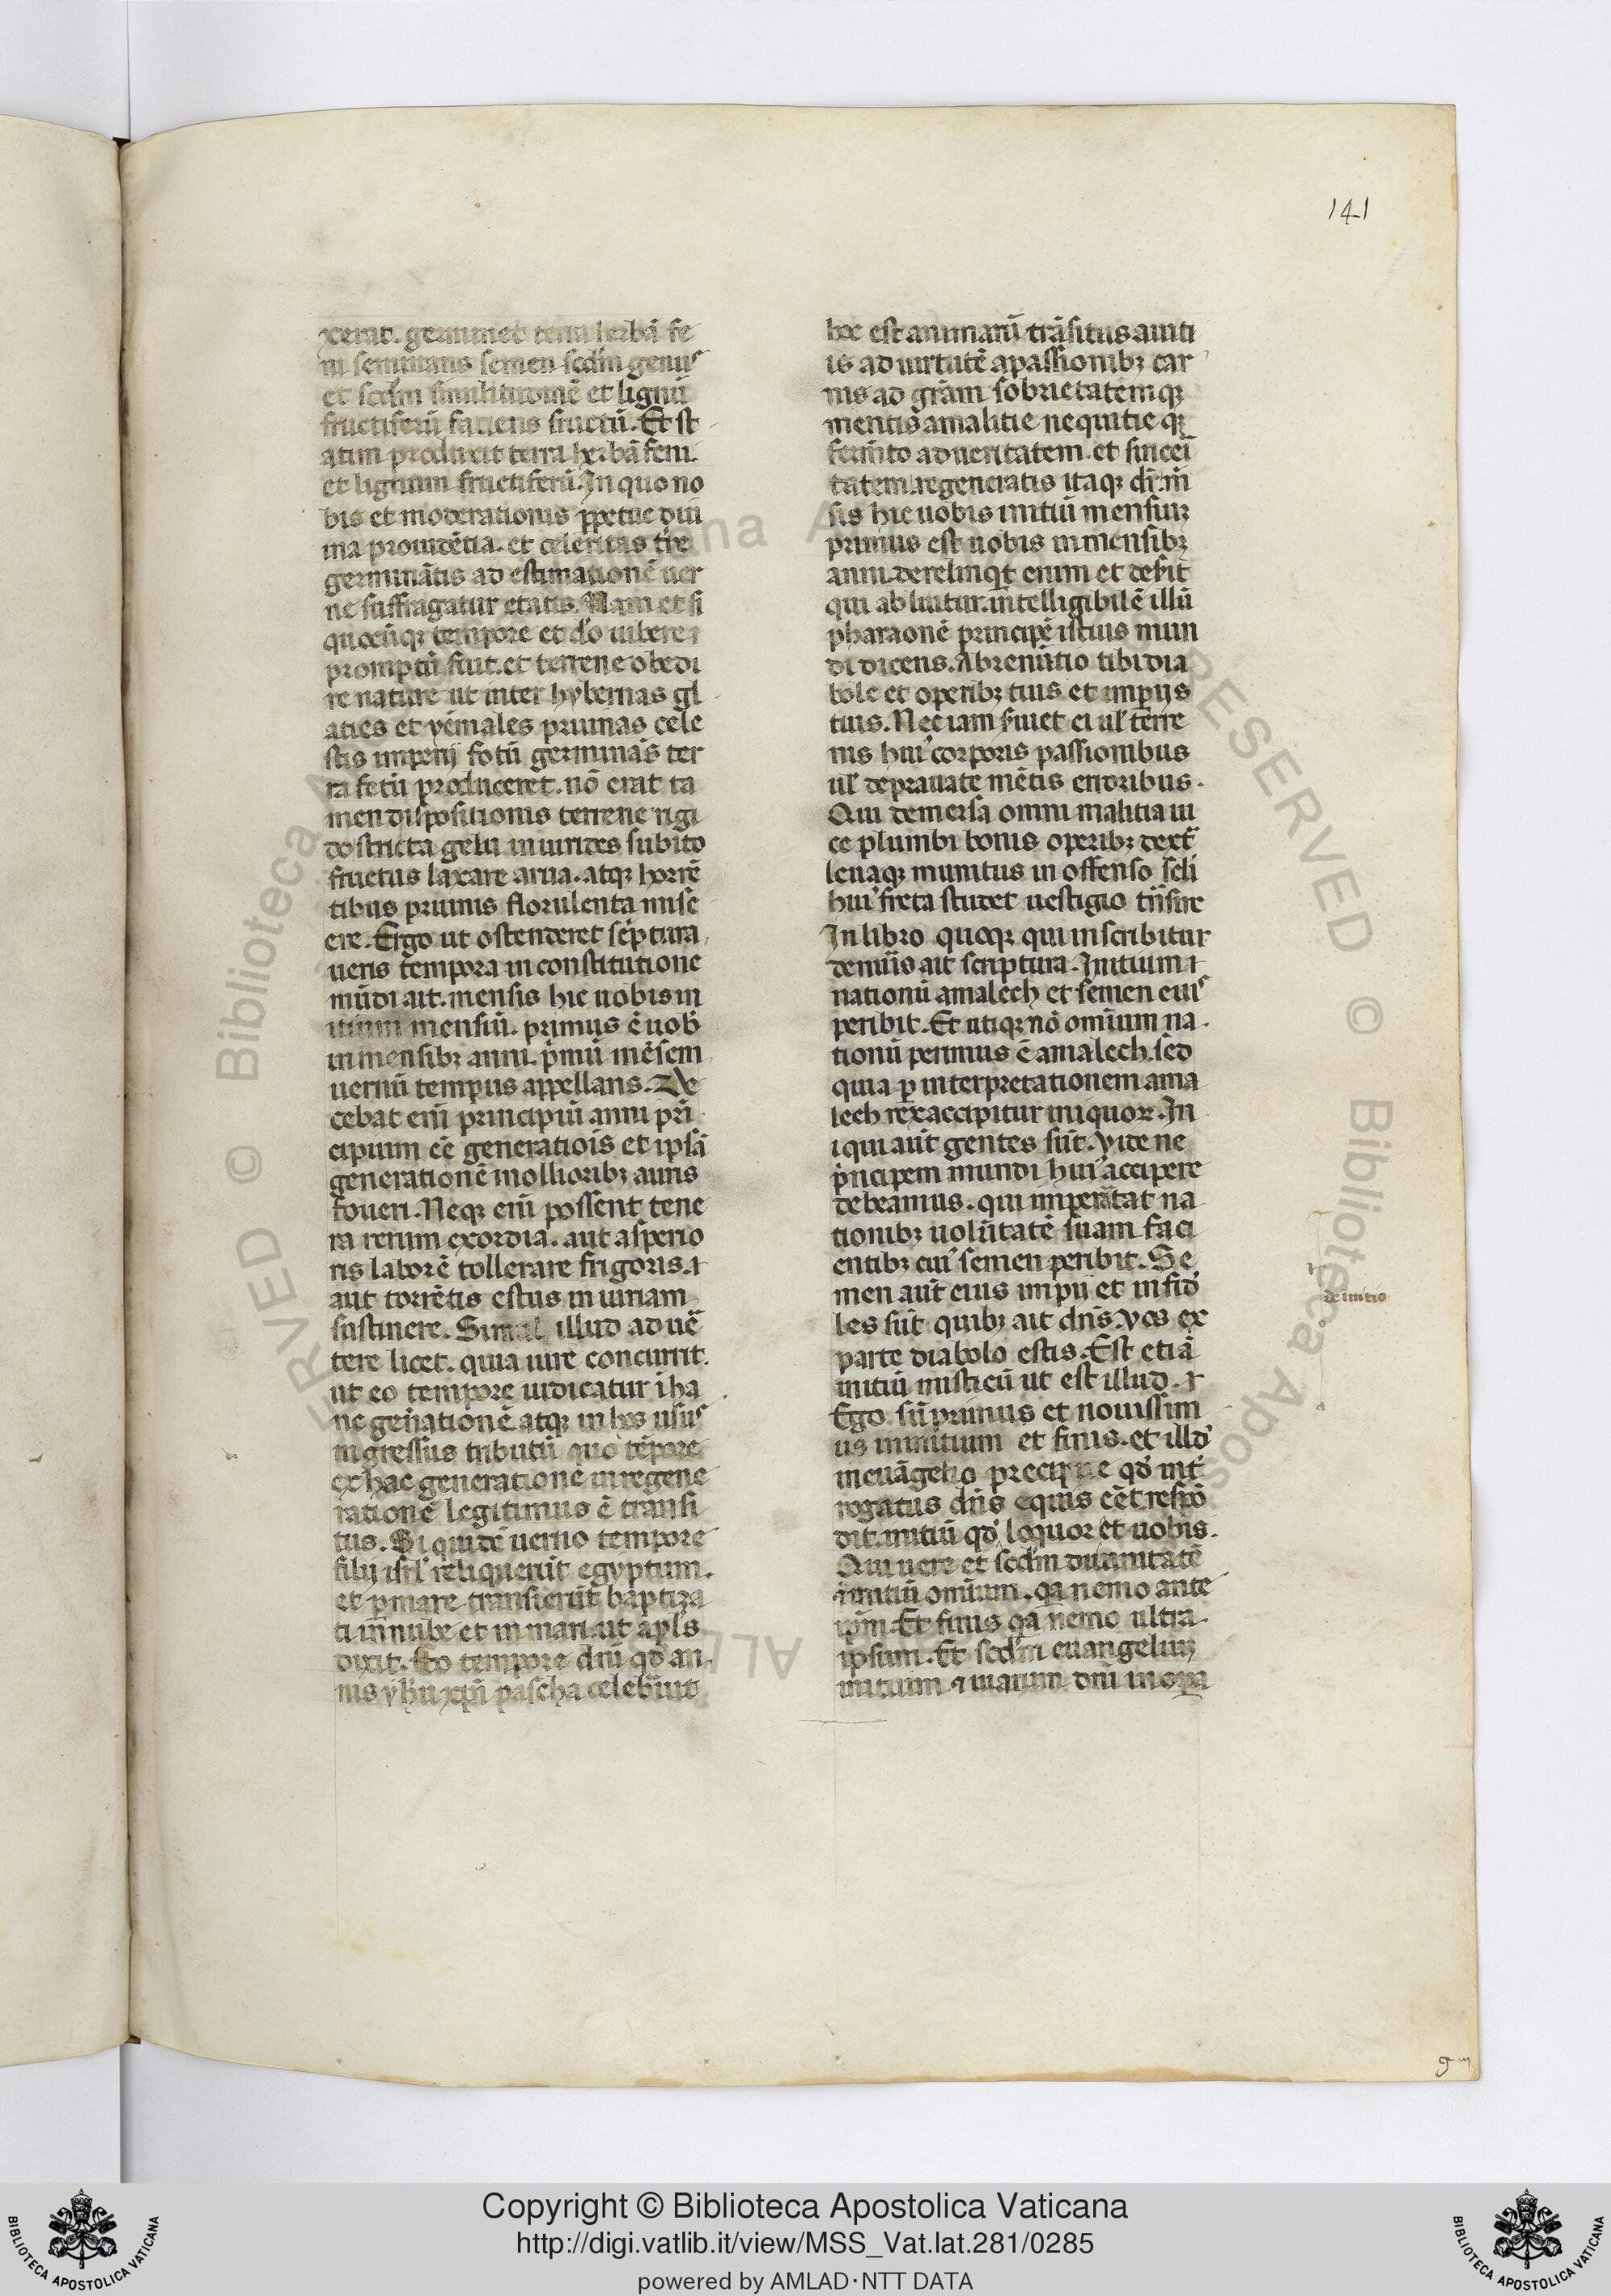 141
xerat. germinet terra herbā fe
ni seminans semen scdm̄ genus
et scdm̄ similitudinē et lignū
fructiferū faciens fructū. Et st
atim produxit terra herbā feni.
et lignum fructiferū. In quo no
bis et moderationis ꝑpetue diui
na prouidētia. et celeritas tr̄e
germinātis ad estimationē uer
ne suffragatur etatis. Nam et si
quocūqꝫ tempore et dō iubere
promptū fuit. et terrene obedi
re nature ut inter hybernas gl
aties et yemales pruinas cele
stis imperij fotū germinās ter
ra fetū produceret. nō erat ta
men dispositionis terrene rigi
do stricta gelu in uirides subito
fructus laxare arua. atqꝫ horrē
tibus pruinis florulenta misc
ere. Ergo ut ostenderet scp̄tura
ueris tempora in constitutione
mūdi ait. mensis hic uobis in
itium mensiū. primus ē uob̄
in mensibꝫ anni. pͥmū mēsem
uernū tempus appellans. De
cebat eni principiū anni prī
cipium eē generatiois et ipsā
generationē mollioribꝫ auris
foueri. Neqꝫ eni possent tene
ra rerum exordia. aut asperio
ris laborē tollerare frigoris.
aut torrētis estus iniuriam
sustinere. Simul illud aduē
tere licet. quia iure concurrit.
ut eo tempore uidicatur i ha
nc gen̄ationē atqꝫ in hos usus
ingressus tributū quo tēpore
ex hac generatione in regene
rationē legitimus ē transi
tus. Si quidē uerno tempore
filij isrl̄ reliquerūt egyptum.
et ꝑ mare transierūt baptiza
ti in nube et in mari ut apl̄s
dixit. Eo tempore dn̄i qd̄ an
nis yhū xpī pascha celebr̄iut
hoc est animarū trāsitus a uiti
is ad uirtutē a passionibꝫ car
nis ad grām sobrietatemqꝫ
mentis a malitie nequitieqꝫ
fermto ad ueritatem. et sinceri
tatem. regeneratis itaqꝫ dr̄. m̄
sis hic uobis initiū mensiuꝫ
primus est uobis in mensibꝫ
anni. derelinqͥt enim et deserit
qui abluitur. intelligibilē illū
pharaonē principē istius mun
di dicens. Abrenūtio tibi dia
bole et operibꝫ tuis et imperijs
tuis. Nec iam s̄uiet ei ul̄ terre
nis huiꝰ corporis passionibus
ul̄ deprauate mētis erroribus.
Qui demersa omni malitia ui
ce plumbi bonis operibꝫ dext̄
leuaqꝫ munitus in offenso sc̄li
huiꝰ freta studet uestigio tn̄sire
In libro quoqꝫ qui inscribitur
de nuīs ait scriptura. Initium
nationū amalech et semen eius
peribit. Et utiqꝫ nō omium na
tionū primus ē amalech. sed
quia ꝑ interpretationem ama
lech rex accipitur iniquoꝝ. In
iqui aūt gentes sūt. Vide ne
pͥncipem mundi huiꝰ accipere
debeamus. qui imperitat na
tionibꝫ uolūtatē suam faci
entibꝫ cuiꝰ semen peribit. Se
men aūt eius impii et infid̄
les sūt quibꝫ ait dn̄s. Vos ex
parte diabolo estis. Est etiā
initiū misticū ut est illud.
Ego sū primus et nouissim
us initium et finis. et illd̄
in euāgelio precipue qd̄ int̄
rogatus dn̄s quis eēt respō
dit. initiū qd̄ loquor et uobis.
Qui uere et scdm̄ diuinitatē
initiū omium. qa nemo ante
ipm̄. Et finis qa nemo ultra
ipsum. Et scdm̄ euangeliuꝫ
initium uiarum dn̄i in opa
de initio
Copyright © Biblioteca Apostolica Vaticana
http://digi.vatlib.it/view/MSS_Vat.lat.281/0285
powered by AMLAD·NTT DATA
BIBLIOTECA APOSTOLICA VATICANA
BIBLIOTECA APOSTOLICA VATICANA